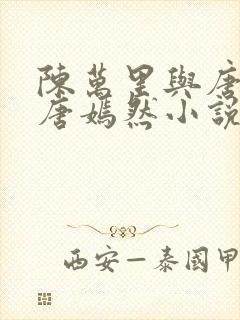 陳萬里與唐
唐嫣然小說
西安—泰國甲